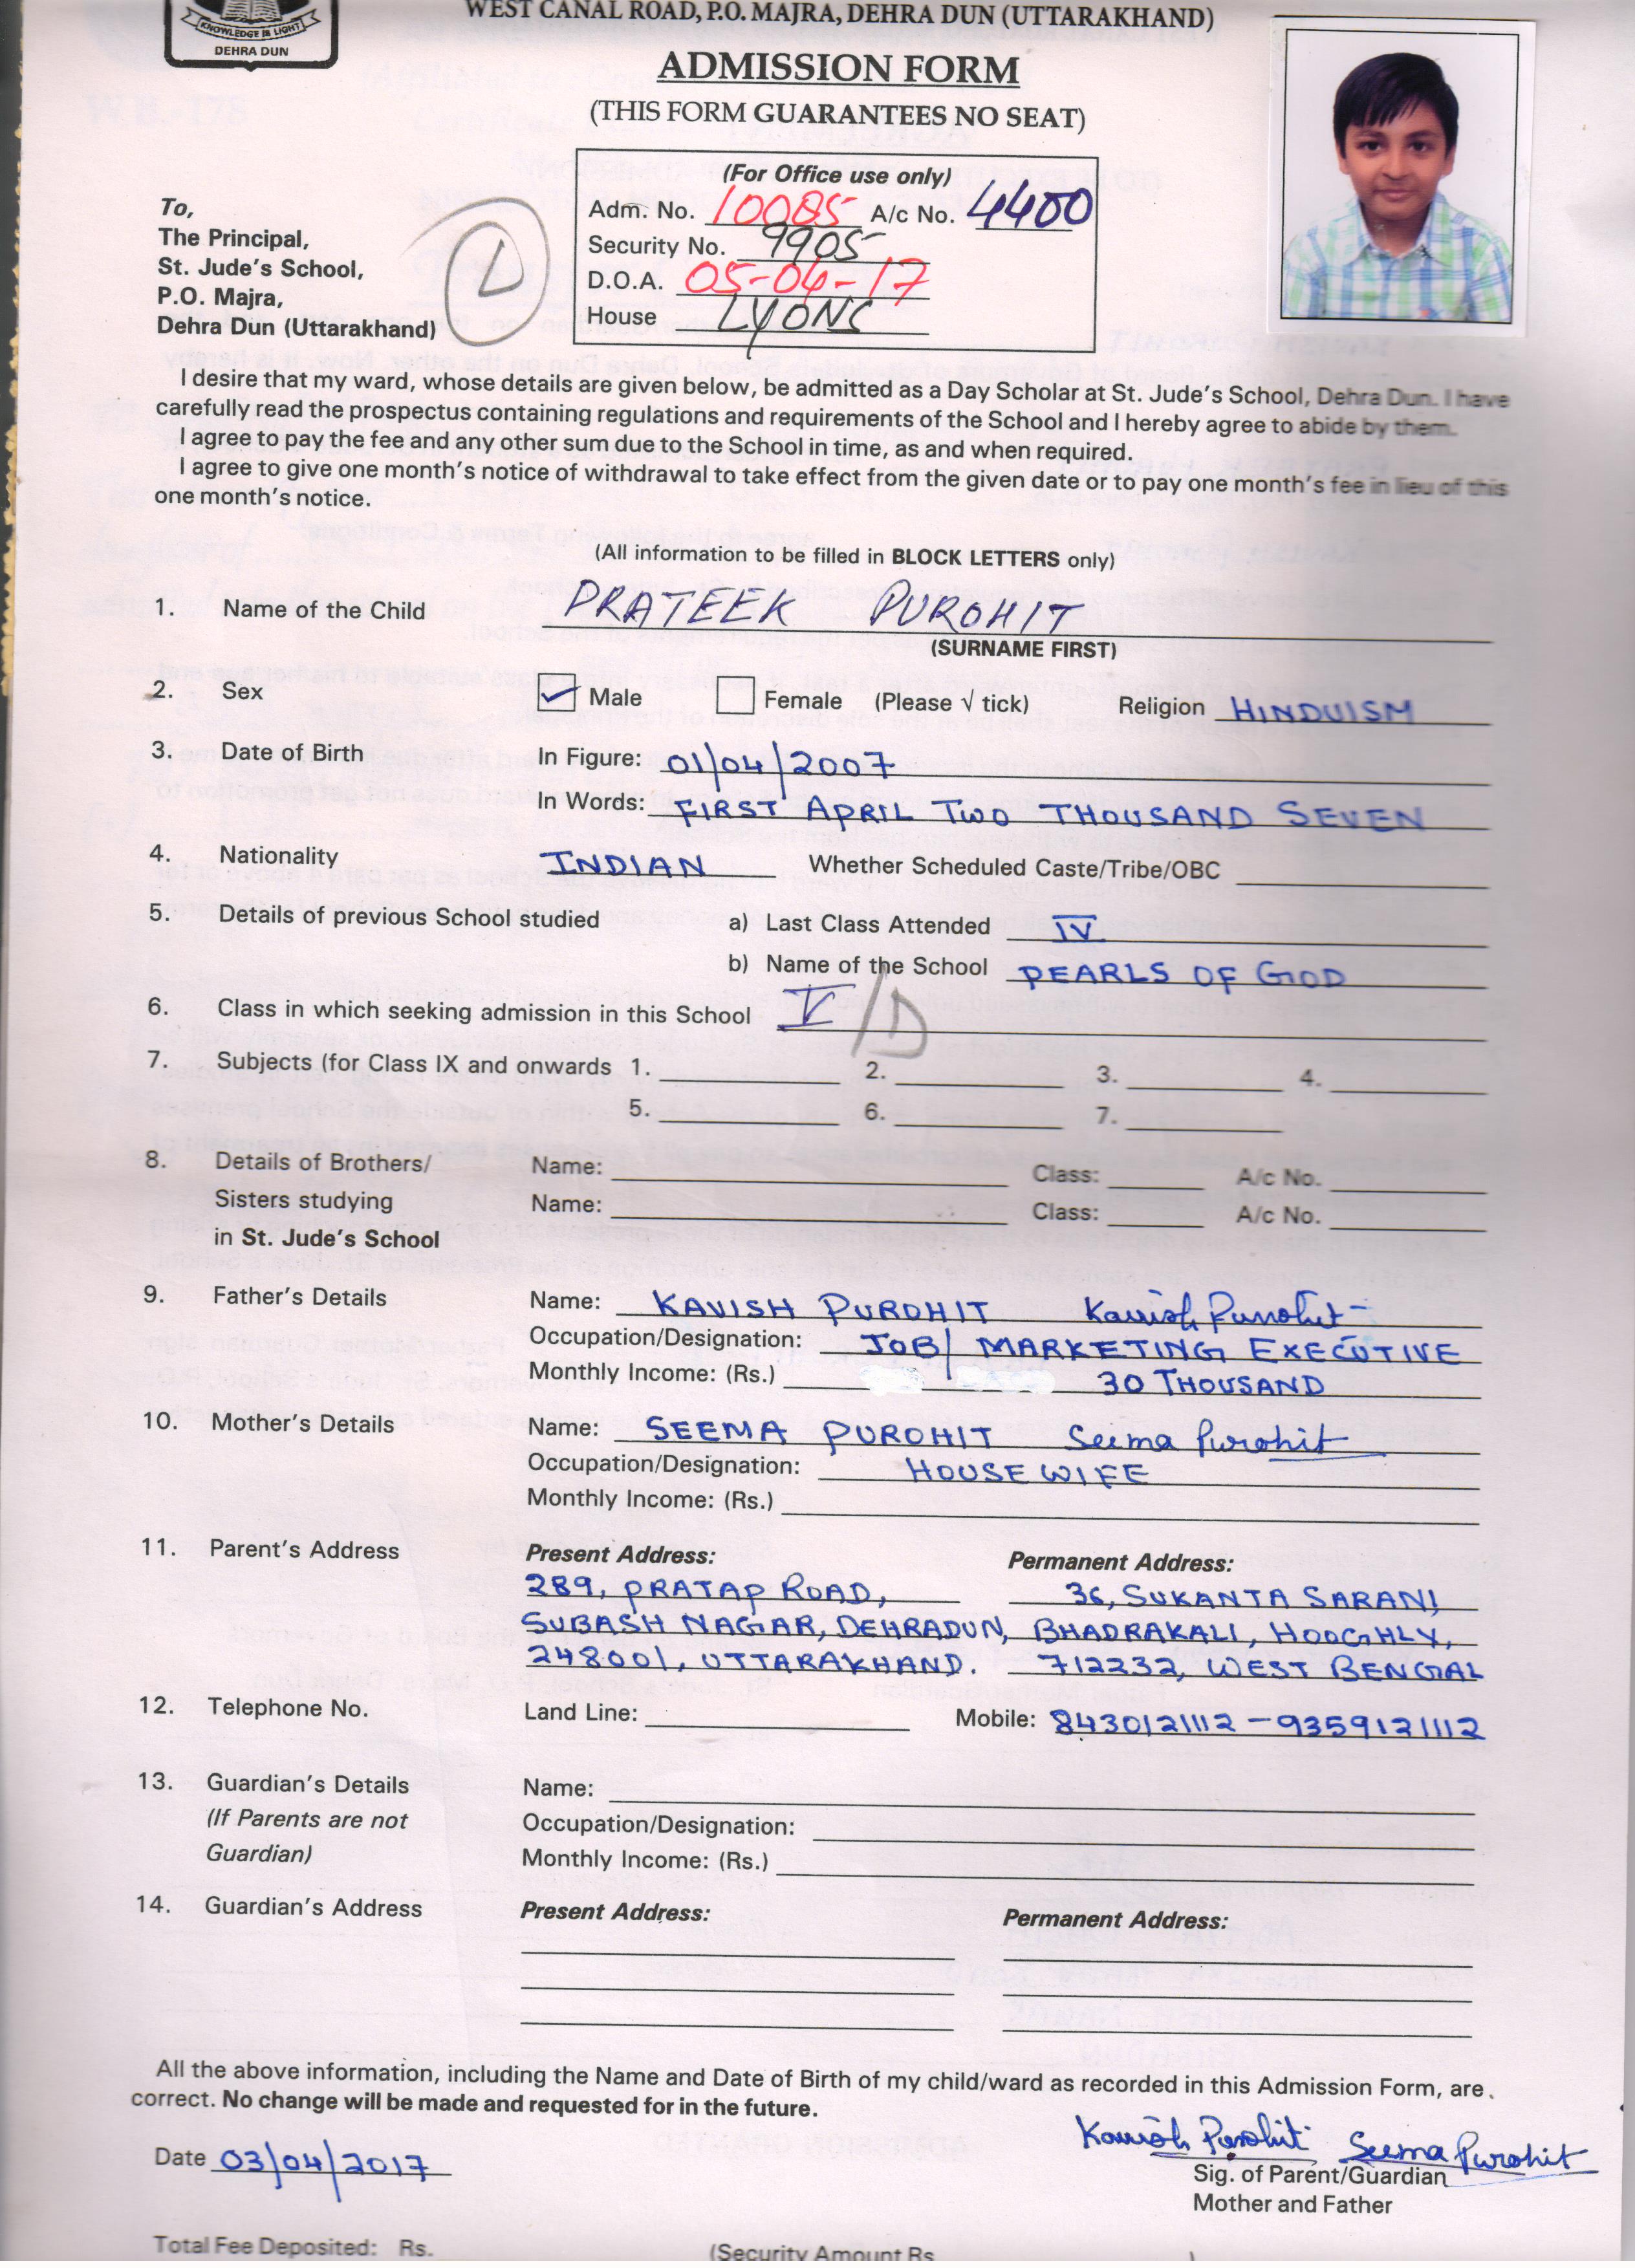 KNOWLEDGE IS LIGHT
DEHRA DUN
WEST CANAL ROAD, P.O. MAJRA, DEHRA DUN (UTTARAKHAND)
ADMISSION FORM
(THIS FORM GUARANTEES NO SEAT)
(For Office use only)
Adm. No. 10085 A/c No. 4400
Security No. 9905
D.O.A. 05-04-17
House LYONS
To,
The Principal,
St. Jude's School,
P.O. Majra,
Dehra Dun (Uttarakhand)
L
I desire that my ward, whose details are given below, be admitted as a Day Scholar at St. Jude's School, Dehra Dun. I have
carefully read the prospectus containing regulations and requirements of the School and I hereby agree to abide by them.
I agree to pay the fee and any other sum due to the School in time, as and when required.
I agree to give one month's notice of withdrawal to take effect from the given date or to pay one month's fee in lieu of this
one month's notice.
(All information to be filled in BLOCK LETTERS only)
1. Name of the Child PRATEEK PUROHIT
(SURNAME FIRST)
2. Sex ✓ Male Female (Please √ tick) Religion HINDUISM
3. Date of Birth In Figure: 01/04/2007
In Words: FIRST APRIL TWO THOUSAND SEVEN
4. Nationality INDIAN Whether Scheduled Caste/Tribe/OBC
5. Details of previous School studied a) Last Class Attended IV
b) Name of the School PEARLS OF GOD
6. Class in which seeking admission in this School V/D
7. Subjects (for Class IX and onwards 1. 2. 3. 4.
5. 6. 7.
8. Details of Brothers/ Name: Class: A/c No.
Sisters studying Name: Class: A/c No.
in St. Jude's School
9. Father's Details Name: KAVISH PUROHIT Kavish Purohit
Occupation/Designation: JOB/ MARKETING EXECUTIVE
Monthly Income: (Rs.) 30 THOUSAND
10. Mother's Details Name: SEEMA PUROHIT Seema Purohit
Occupation/Designation: HOUSE WIFE
Monthly Income: (Rs.)
11. Parent's Address Present Address: Permanent Address:
289, PRATAP ROAD, 36, SUKANTA SARANI
SUBASH NAGAR, DEHRADUN, BHADRAKALI, HOOGHLY,
248001, UTTARAKHAND. 712232, WEST BENGAL
12. Telephone No. Land Line: Mobile: 8430121112 - 9359121112
13. Guardian's Details Name:
(If Parents are not Occupation/Designation:
Guardian) Monthly Income: (Rs.)
14. Guardian's Address Present Address: Permanent Address:
All the above information, including the Name and Date of Birth of my child/ward as recorded in this Admission Form, are
correct. No change will be made and requested for in the future.
Kavish Purohit Seema Purohit
Date 03/04/2017 Sig. of Parent/Guardian
Mother and Father
Total Fee Deposited: Rs. (Security Amount Rs. )